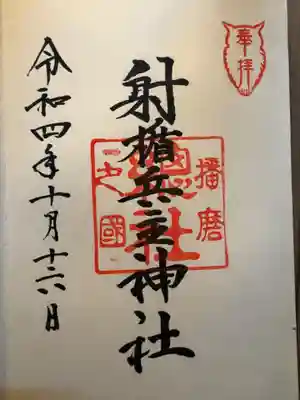 奉拝
射楯兵主神社
播磨
總社
令和四年十月十六日